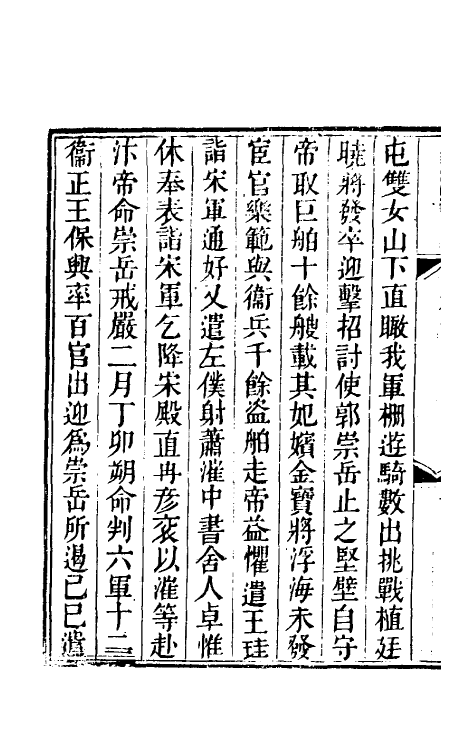 屯雙女山下直瞰我軍柵遊騎數出挑戰植廷
曉將發卒迎擊招討使郭崇岳止之堅壁自守
帝取巨舶十餘艘載其妃嬪金寶將浮海未發
宦官樂範與衞兵千餘盗舶走帝益懼遣王珪
詣宋軍通好乂遣左僕射蕭漼中書舍人卓惟
休奉表詣宋軍乞降宋殿直冉彦衮以漼等赴
汴帝命崇岳戒嚴二月丁卯朔命判六軍十二
衞正王保興率百官出迎爲崇岳所遏己巳濳